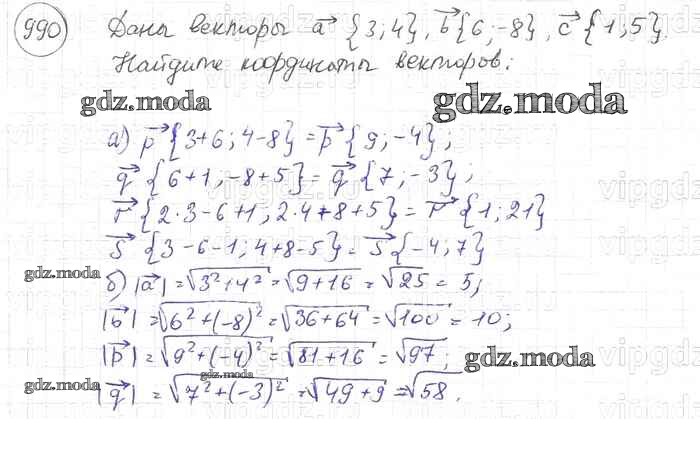 990 Даны векторы a⃗ {3; 4}, b⃗ {6; -8}, c⃗ {1; 5}.
Найдите координаты векторов:
gdz.moda gdz.moda
а) p⃗ {3+6; 4-8} = p⃗ {9; -4};
q⃗ {6+1; -8+5} = q⃗ {7; -3};
r⃗ {2·3-6+1; 2·4+8+5} = r⃗ {1; 21}
s⃗ {3-6-1; 4+8-5} = s⃗ {-4; 7}
gdz.moda
б) |a⃗| = √3²+4² = √9+16 = √25 = 5;
|b⃗| = √6²+(-8)² = √36+64 = √100 = 10;
|p⃗| = √9²+(-4)² = √81+16 = √97; gdz.moda
gdz.moda gdz.moda
|q⃗| = √7²+(-3)² = √49+9 = √58.